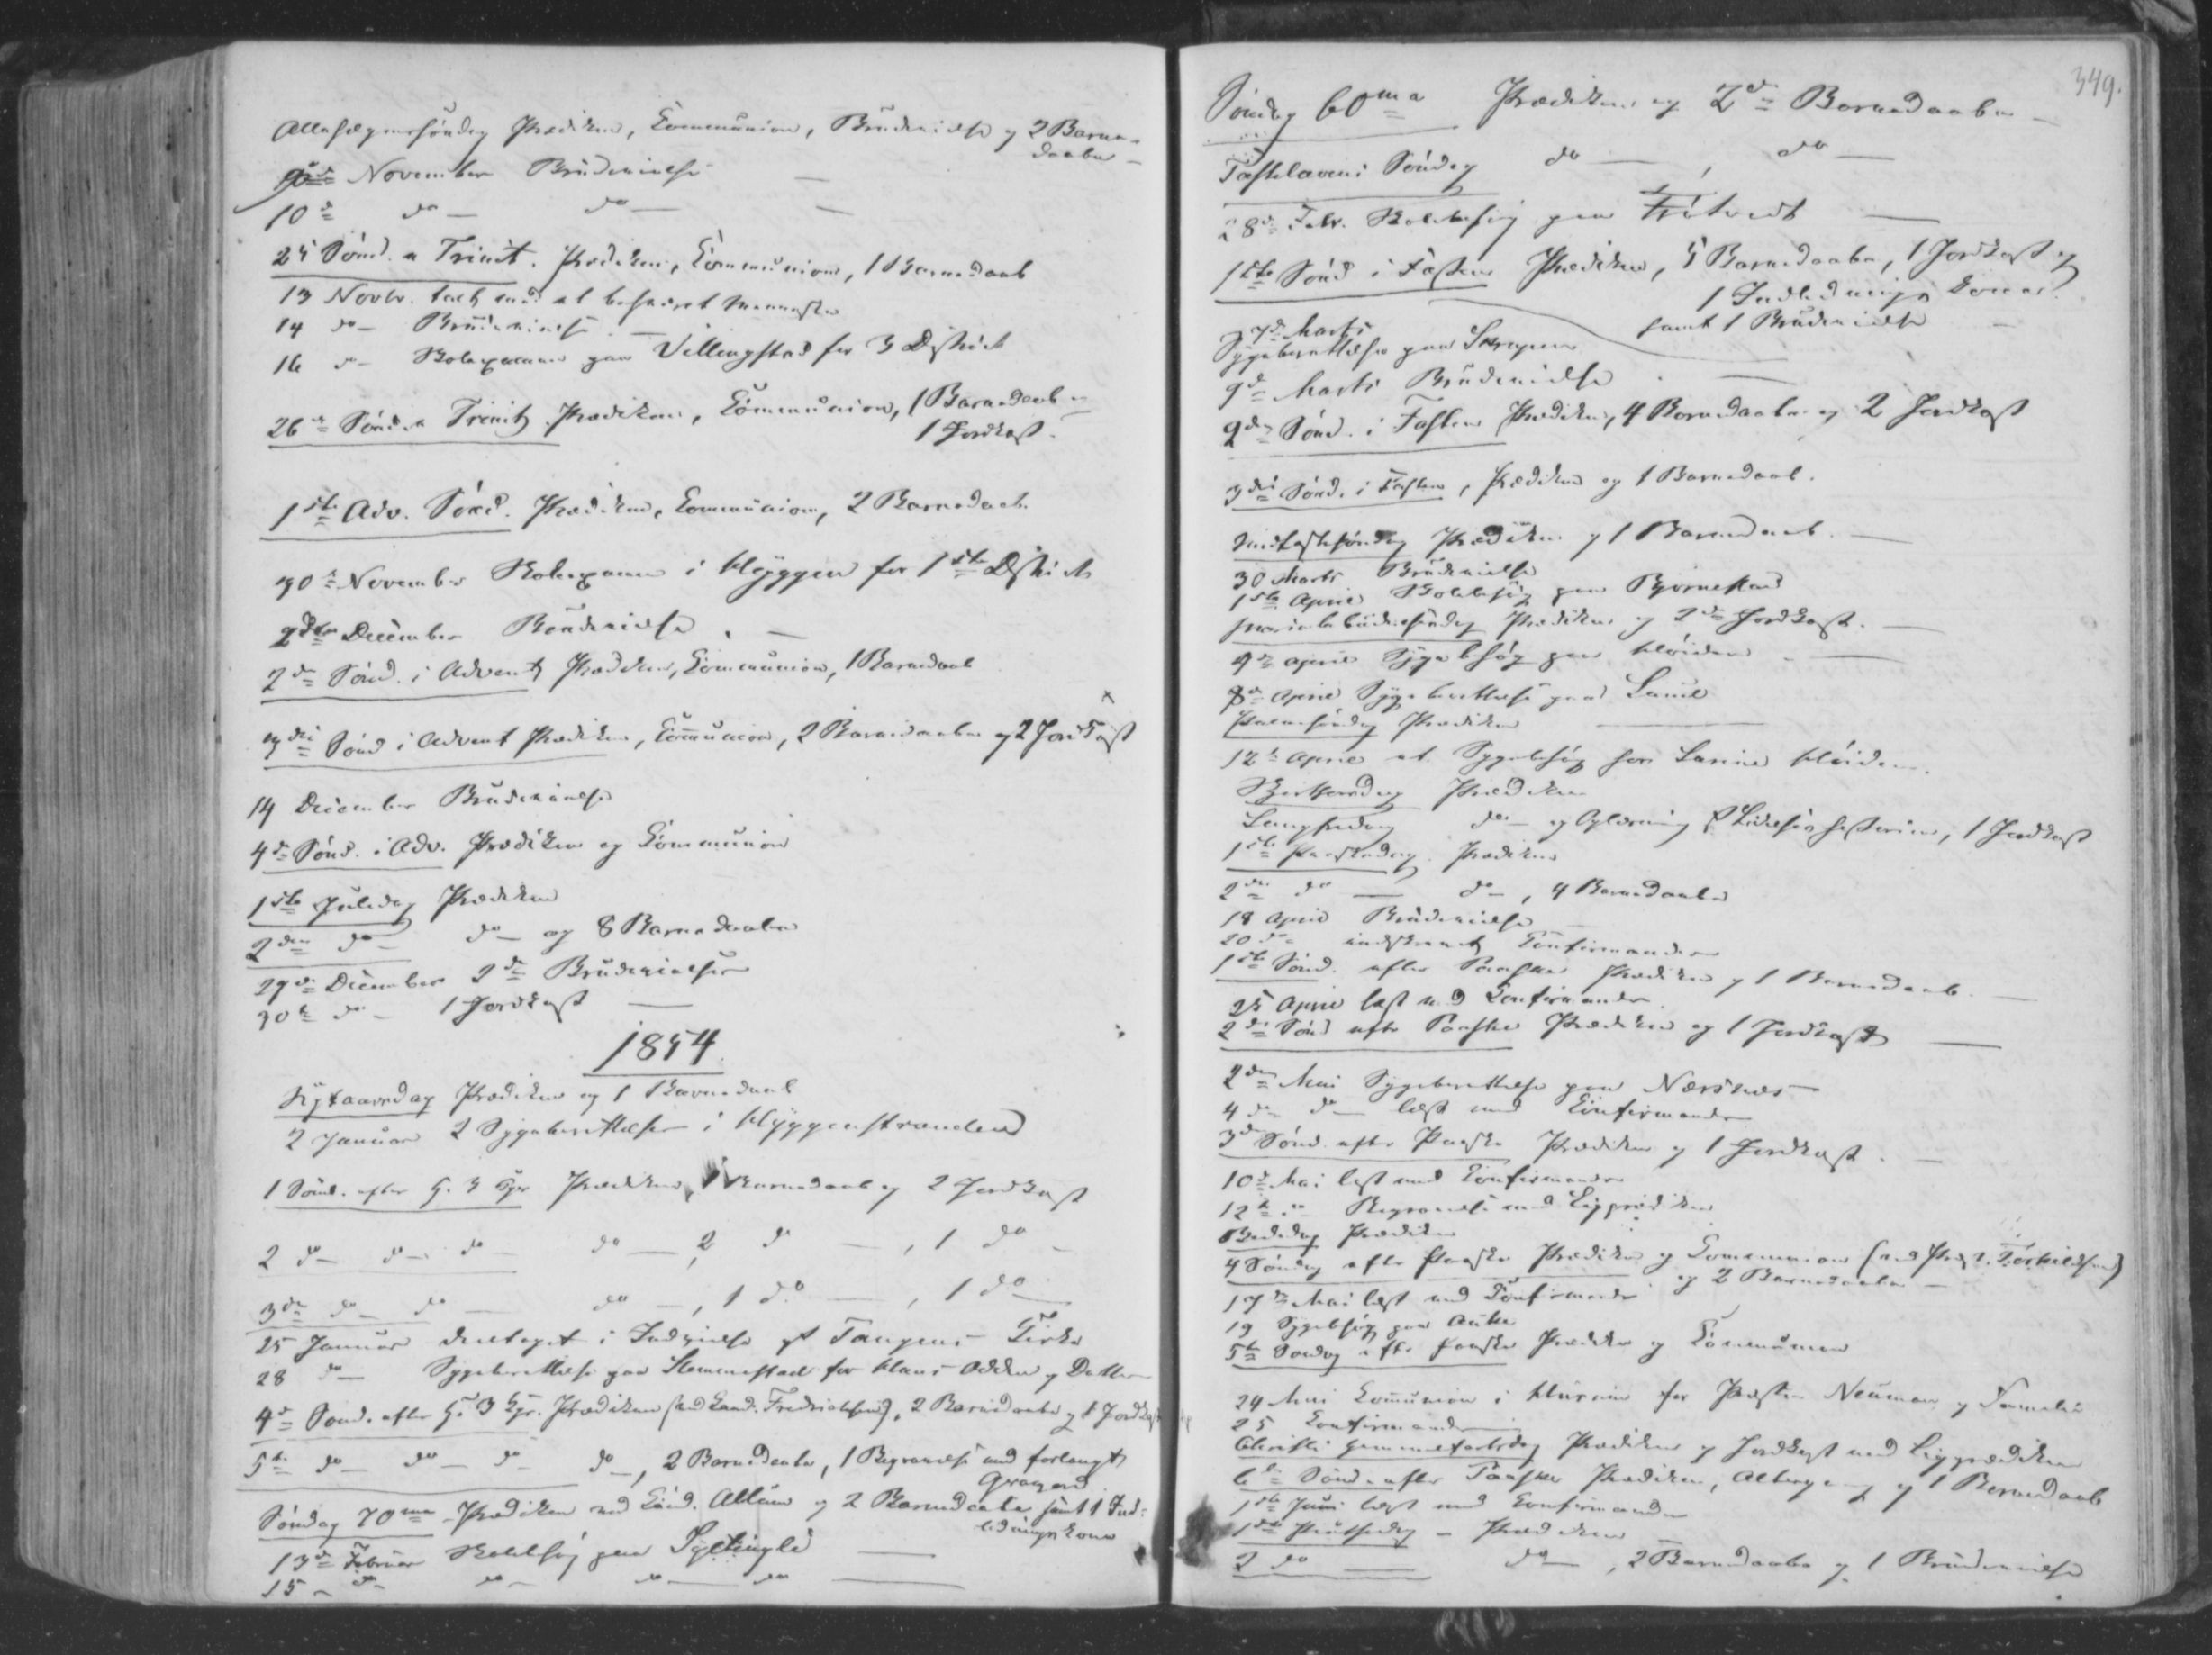 Allehelgenssöndag Prædiken, Communion, Brudevielse og 2 Barne-
daabe
9de November Brudevielse
10de do do
25 Sönd. a Trinit. Prædiken, Communion, 1 Barnedaab
13 Novbr.
14 do Brudevielse
16 do Skolexamen paa Villingstad for 3 District
26de Sönd. a Trinit. Prædiken, Communion, 1 Barnedaab og
1 Jordkast.
1ste Adv. Sönd. Prædiken, Communion, 2 Barnedaab.
30te November Skolexamen i Klöggen for 1ste District
2den December Brudevielse
2den Sönd. i Advent Prædiken, Communion, 1 Barnedaab
3die Sönd i Advent Prædiken, Communion, 2 Barnedaabe og 2 Jordkast
14 December Brudevielse
4de Sönd. i Adv. Prædiken og Communion
1ste Juledag Prædiken
2den do do og 8 Barnedaabe
29de December 2de Brudevielser
30te do 1 Jordkast
1854
Nytaarsdag Prædiken og 1 Barnedaab
2 Januar 2 Sygeberettelser i Klöggenstranden
1 Sönd. efter H. 3 Kgr Prædiken, Barnedaab og 2 Jordkast
2 do do do do 2 do, 1 do
3die do do do, 1 do, 1 do
25 Januar deeltaget i Indvielse af Tangens Kirke
28 do Sygeberettelse paa Slemmestad for Klaus Odden og Datter
4de Sönd. efter H. 3 Kgr. Prædiken (ved Cand. Fredrichsen), 2 Barnedaabe og 1 Jordkast
5te do do do do, 2 Barnedaabe, 1 Begravelse med forlangt
Söndag 70ma Prædiken ved Cand. Altum og 2 Barnedaabe samt 1 Ind-
ledningskone
13de Februar Skolebesög paa
15 do do do do
349.
Söndag 60ma Prædiken og 2de Barnedaabe
Fastelavens Söndag do, do
28de Febr. Skolebesög paa
1ste Sönd i Fasten Prædiken, 5 Barnedaabe, 1 Jordkast og
1 Indledningskone
samt 1 Brudevielse
7de Marts
Sygeberettelse paa
9de Marts Brudevielse
2den Sönd. i Fasten Prædiken, 4 Barnedaabe og 2 Jordkast
3die Sönd. i Fasten, Prædiken og 1 Barnedaab.
Midfastesöndag Prædiken og 1 Barnedaab.
30 Marts Brudevielse
1ste April Skolebesög paa Björnstad
Mariæ Bebudelsesdag Prædiken og 2de Jordkast.
4de April Sygebesög paa
8de April Sygeberettelse paa
Palmesöndag Prædiken
12te April et Sygebesög hos
Skjærthorsdag Prædiken
Langfredag do og Oplæsning af Lidelseshistorien, 1 Jordkast
1ste Paaskedag Prædiken
2den do do, 4 Barnedaabe
18 April Brudevielse
20 do indskrevet Confirmander
1ste Sönd. efter Paaske Prædiken og 1 Barnedaab.
25 April læst med Confirmander.
2den Sönd efter Paaske Prædiken og 1 Jordkast
2den Mai Sygeberettelse paa Nærsnæs
4de do læst med Confirmander
3die Sönd. efter Paaske Prædiken og 1 Jordkast.
10de Mai læst med Confirmander
12te do Begravelse med Ligprædiken
Bededag Prædiken
4 Söndag efter Paaske Prædiken og Communion
og 2 Barnedaabe
17de Mai læst med Confirmander
19 Sygebesög paa
5te Söndag efter Paaske Prædiken og Communion
24 Mai Communion i for Præsten Neuman og Familie
25 Confirmander
Christi Himmelfartsdag Prædiken og Jordkast med Ligprædiken
6te Sönd. efter Paaske Prædiken, Altergang og 1 Barnedaab
1ste Juni læst med Confirmander
1ste Pintsedag Prædiken
2 do do, 2 Barnedaabe og 1 Brudevielse